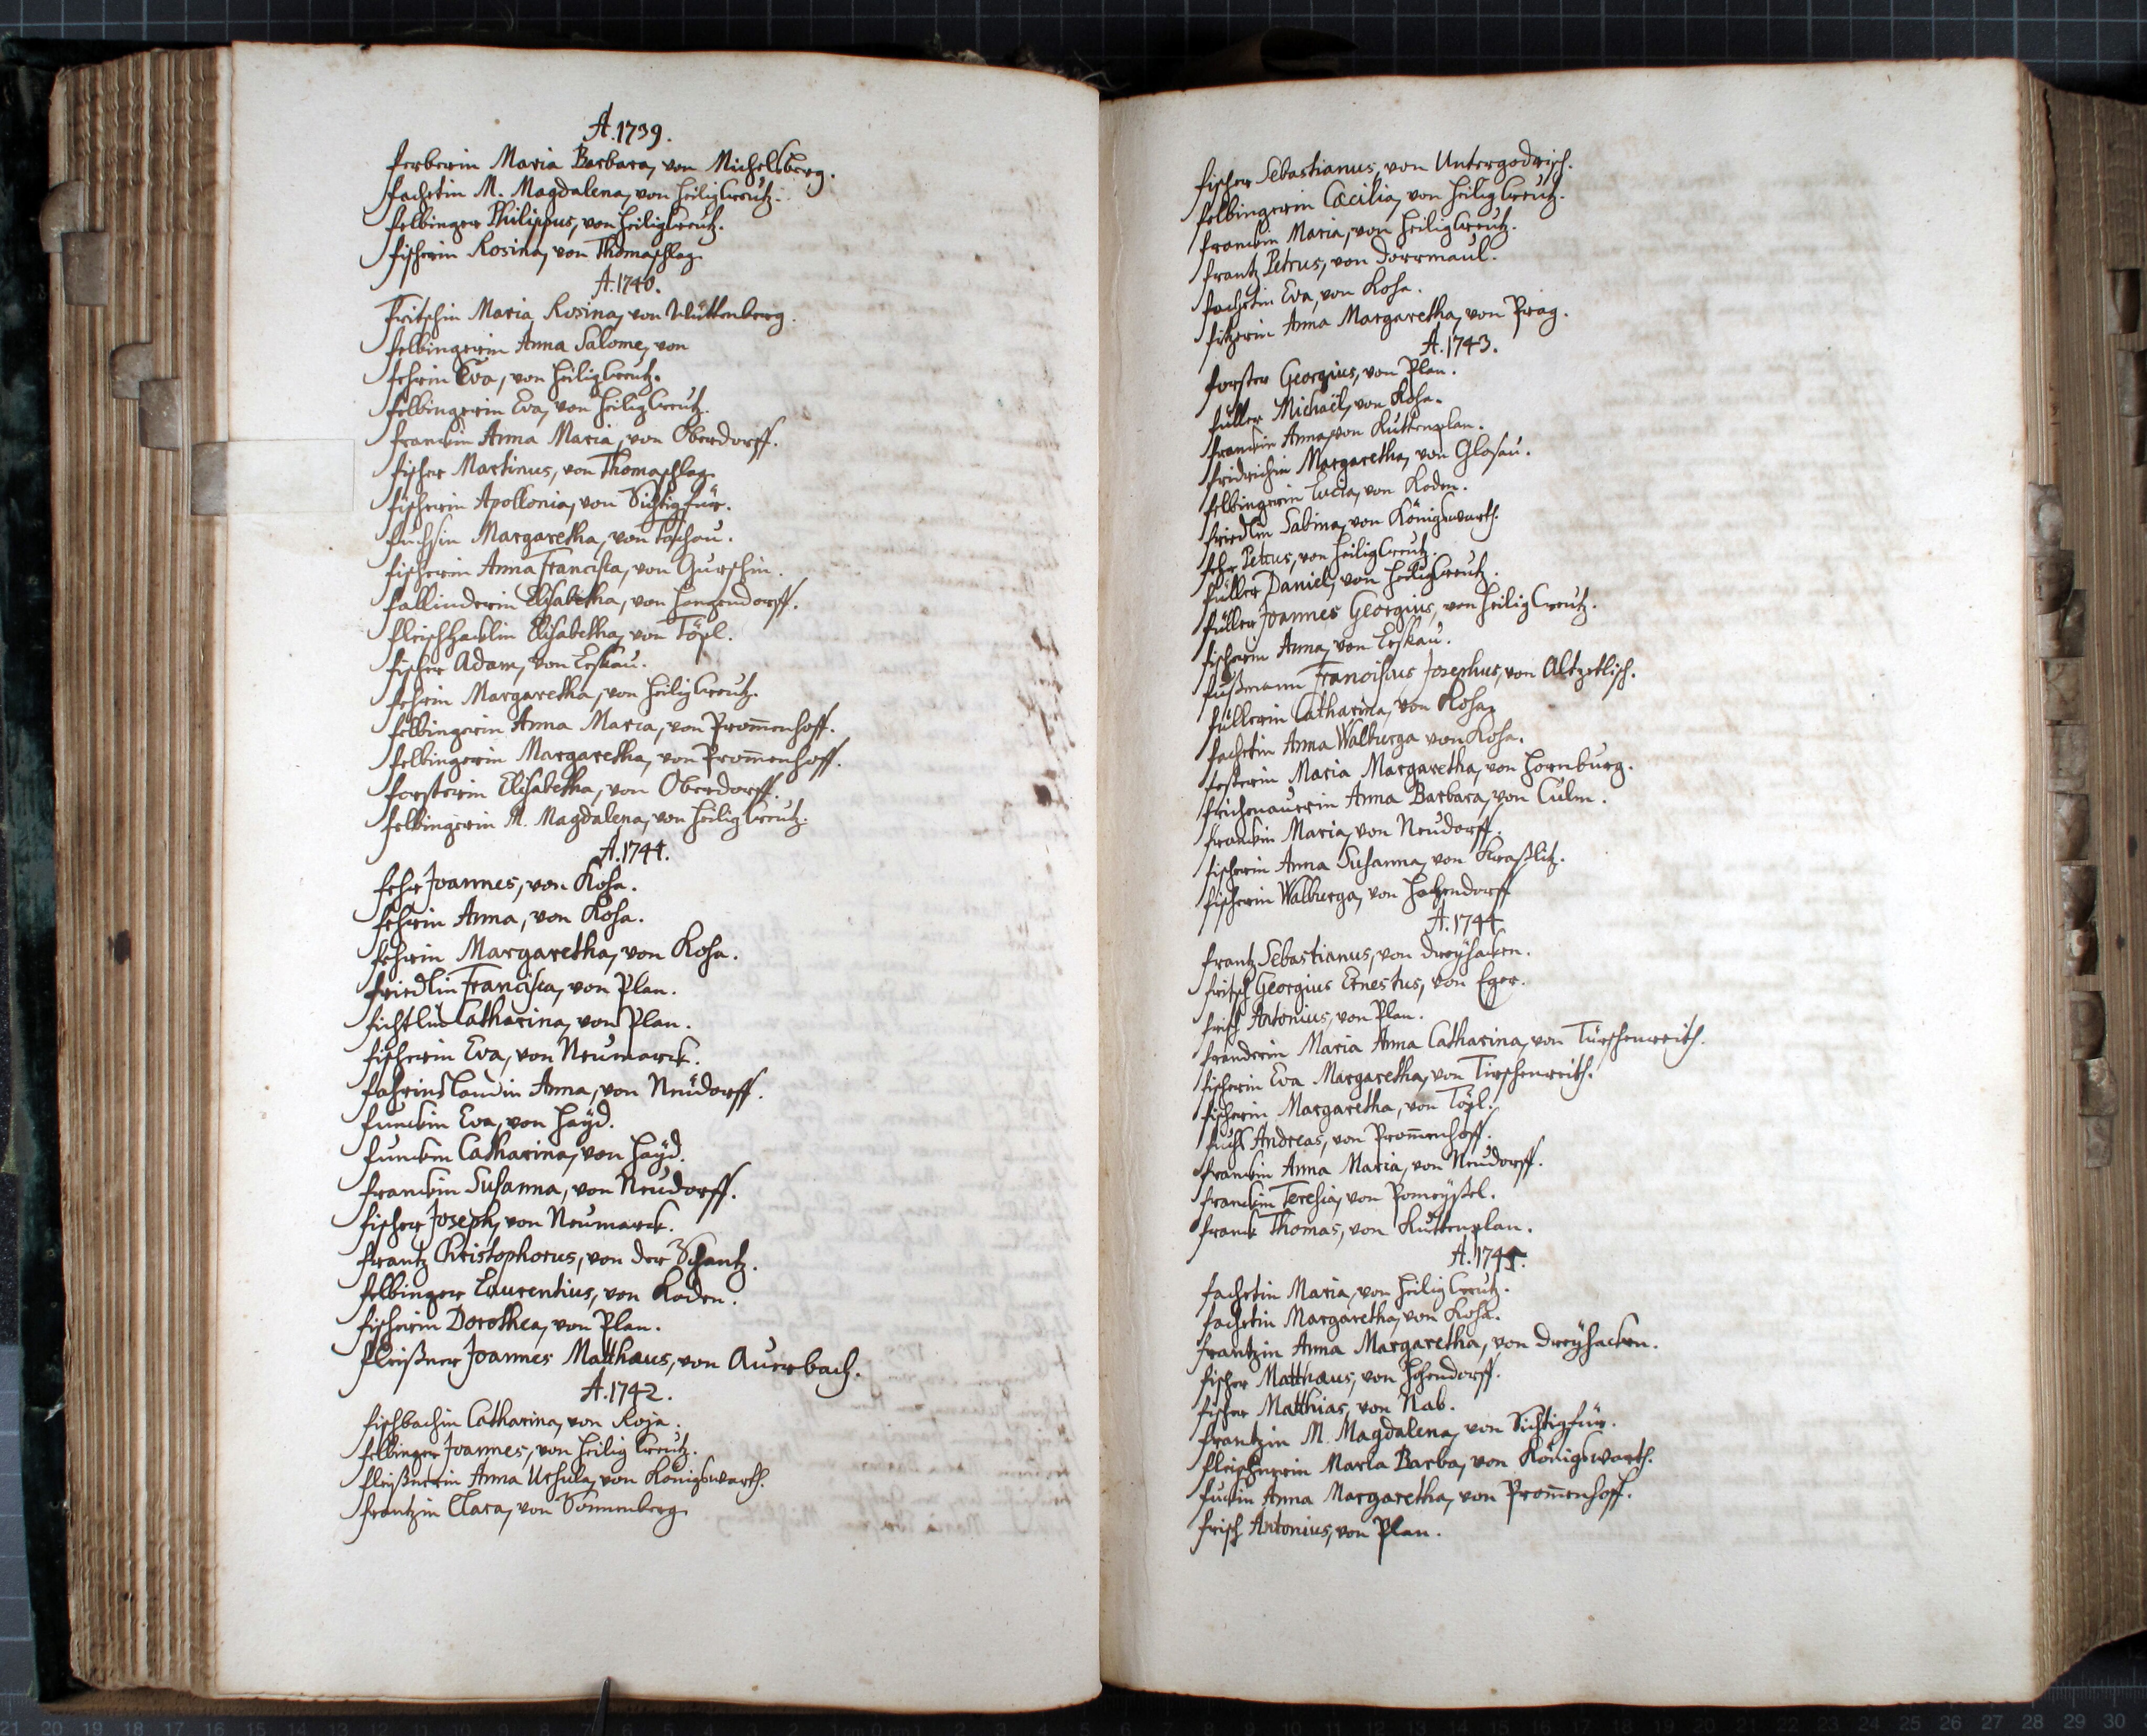 A. 1739.
Ferberin Maria Barbara, von Michelsberg.
Fachetin M. Magdalena, von Heilig Creutz.
Felbinger Philippus, von Heilig Creutz.
Fischerin Rosina, von Thomaschlag.
A. 1740.
Fritschin Maria Rosina, von Wüttenberg.
Felbingerin Anna Salome, von
Fehrin Eva, von Heilig Creutz.
Felbingerin Eva, von Heilig Creutz.
Franckin Anna Maria, von Oberdorff.
Fischer Martinus, von Thomaschlag.
Fischerin Apollonia, von Sichtigfür.
Fuchsin Margaretha, von Tachau.
Fischerin Anna Francisca, von Gurschin.
Fallinderin Elisabetha, von Hangendorff.
Fleischhacklin Elisabetha, von Töpl.
Fischer Adam, von Leskau.
Fehrin Margaretha, von Heilig Creutz.
Felbingerin Anna Maria, von Prom̄enhoff.
Felbingerin Margaretha, von Prom̄enhoff.
Forsterin Elisabetha, von Oberdorff.
Felbingerin M. Magdalena, von Heilig Creutz.
A. 1741.
Fehr Joannes, von Koha.
Fehrin Anna, von Koha.
Fehrin Margaretha, von Koha.
Friedlin Francisca, von Plan.
Fichtlin Catharina, von Plan.
Fischerin Eva, von Neumarck.
Fahrinslandin Anna, von Neudorff.
Funckin Eva, von Hayd.
Funckin Catharina, von Hayd.
Franckin Susanna, von Neudorff.
Fischer Joseph, von Neumarck.
Frantz Christophorus, von der Schantz.
Felbinger Laurentius, von Koden.
Fischerin Dorothea, von Plan.
Fleißner Joannes Matthæus, von Auerbach.
A. 1742.
Fischbachin Catharina, von Roja.
Felbinger Joannes, von Heilig Creutz.
Fleißnerin Anna Ursula, von Königswarth.
Frantzin Clara, von Sonnenberg.
Fischer Sebastianus, von Untergodrisch.
Felbingerin Cæcilia, von Heilig Creutz.
Franckin Maria, von Heilig Creutz.
Frantz Petrus, von Dörrmaul.
Fachetin Eva, von Koha.
Fitzerin Anna Margaretha, von Prag.
A. 1743.
Forster Georgius, von Plan.
Füller Michaël, von Koha.
Franckin Anna, von Kuttenplan.
Fridrichin Margaretha, von Glosau.
Felbingerin Lucia, von Koden.
Friedlin Sabina, von Königswarth.
Fehr Petrus, von Heilig Creutz.
Füller Daniel, von Heilig Creutz.
Füller Joannes Georgius, von Heilig Creutz.
Fischerin Anna, von Leskau.
Fußmann Franciscus Josephus, von Altzetlisch.
Füllerin Catharina, von Koha.
Fachetin Anna Walburga von Koha.
Festerin Maria Margaretha, von Hornburg.
Frichenauerin Anna Barbara, von Culm.
Franckin Maria, von Neudorff.
Fischerin Anna Susanna, von Kraßlitz.
Fischerin Walburga, von Hachendorff
A. 1744
Frantz Sebastianus, von Dreyhacken.
Fritsch Georgius Ernestus, von Eger.
Frisch Antonius, von Plan.
Franderin Maria Anna Catharina, von Türschenreith.
Fischerin Eva Margaretha, von Tirschenreith.
Fischerin Margaretha, von Töpl.
Fuchs Andreas, von Prom̄enhoff.
Franckin Anna Maria, von Neudorff.
Franckin Teresia, von Pomeyßel.
Franck Thomas, von Kuttenplan.
A. 1745.
Fachetin Maria, von Heilig Creutz.
Fachetin Margaretha, von Koha.
Frantzin Anna Margaretha, von Dreyhacken.
Fischer Matthæus, von Hohendorff.
Fischer Matthias, von Nab.
Frantzin M. Magdalena, von Sichtigfür.
Fleischerin Maria Barba, von Königswarth.
Fuckin Anna Margaretha, von Prom̄enhoff.
Frisch Antonius, von Plan.